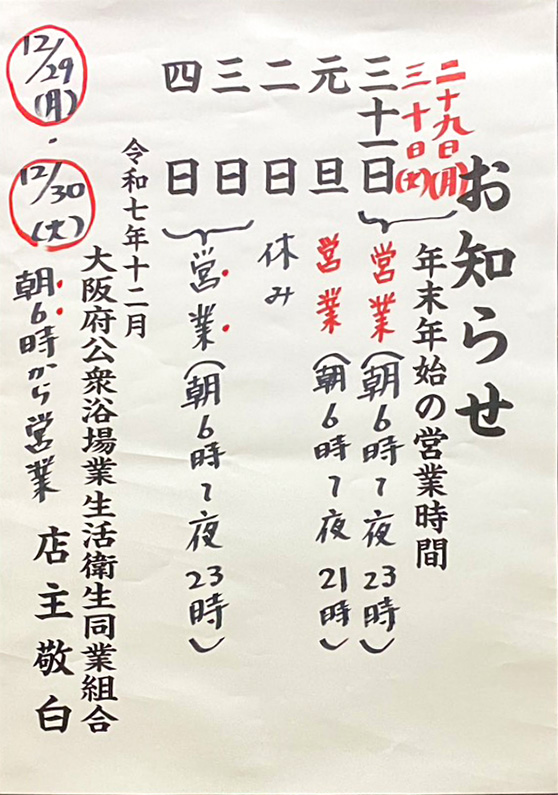 お知らせ
年末年始の営業時間
二十九日(月)
三十日(火)
三十一日 営業(朝6時〜夜23時)
元旦 営業(朝6時〜夜21時)
二日 休み
三日
四日 営業(朝6時〜夜23時)
令和七年十二月
大阪府公衆浴場業生活衛生同業組合
店主敬白
12/29(月)・12/30(火)朝6時から営業